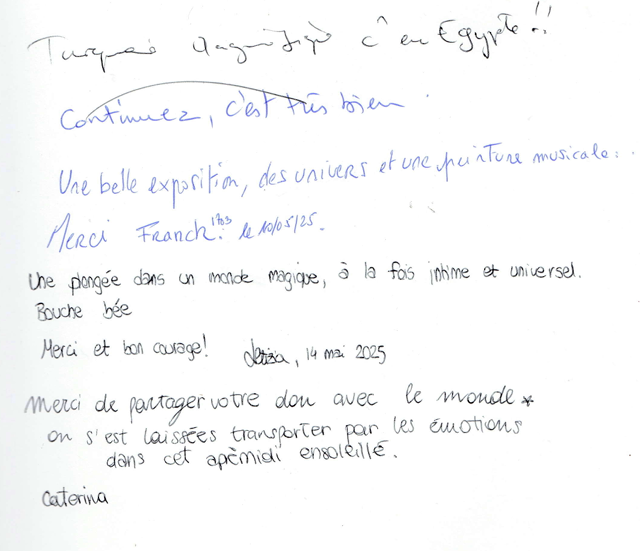 en Egypte !!
Continuez, c'est très bien
Une belle exposition, des univers et une peinture musicale.
Merci Franck. le 10/05/25.
Une plongée dans un monde magique, à la fois intime et universel.
Bouche bée
Merci et bon courage! Letizia, 14 mai 2025
Merci de partager votre don avec le monde *
on s'est laissées transporter par les émotions
dans cet apèmidi ensoleillé.
Caterina